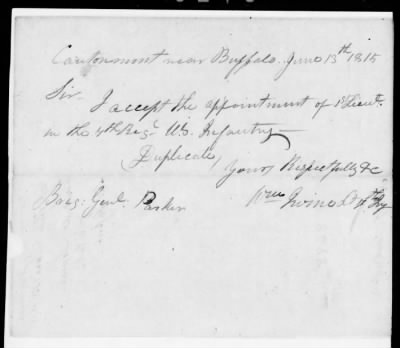 Cantonment near Buffalo. June 13th 1815
Sir
I accept the appointment of 1st Lieut.
in the 4th Regt U.S. Infantry—
(Duplicate)
Yours Respectfully &c
Wm
Brig: Genl. Parker